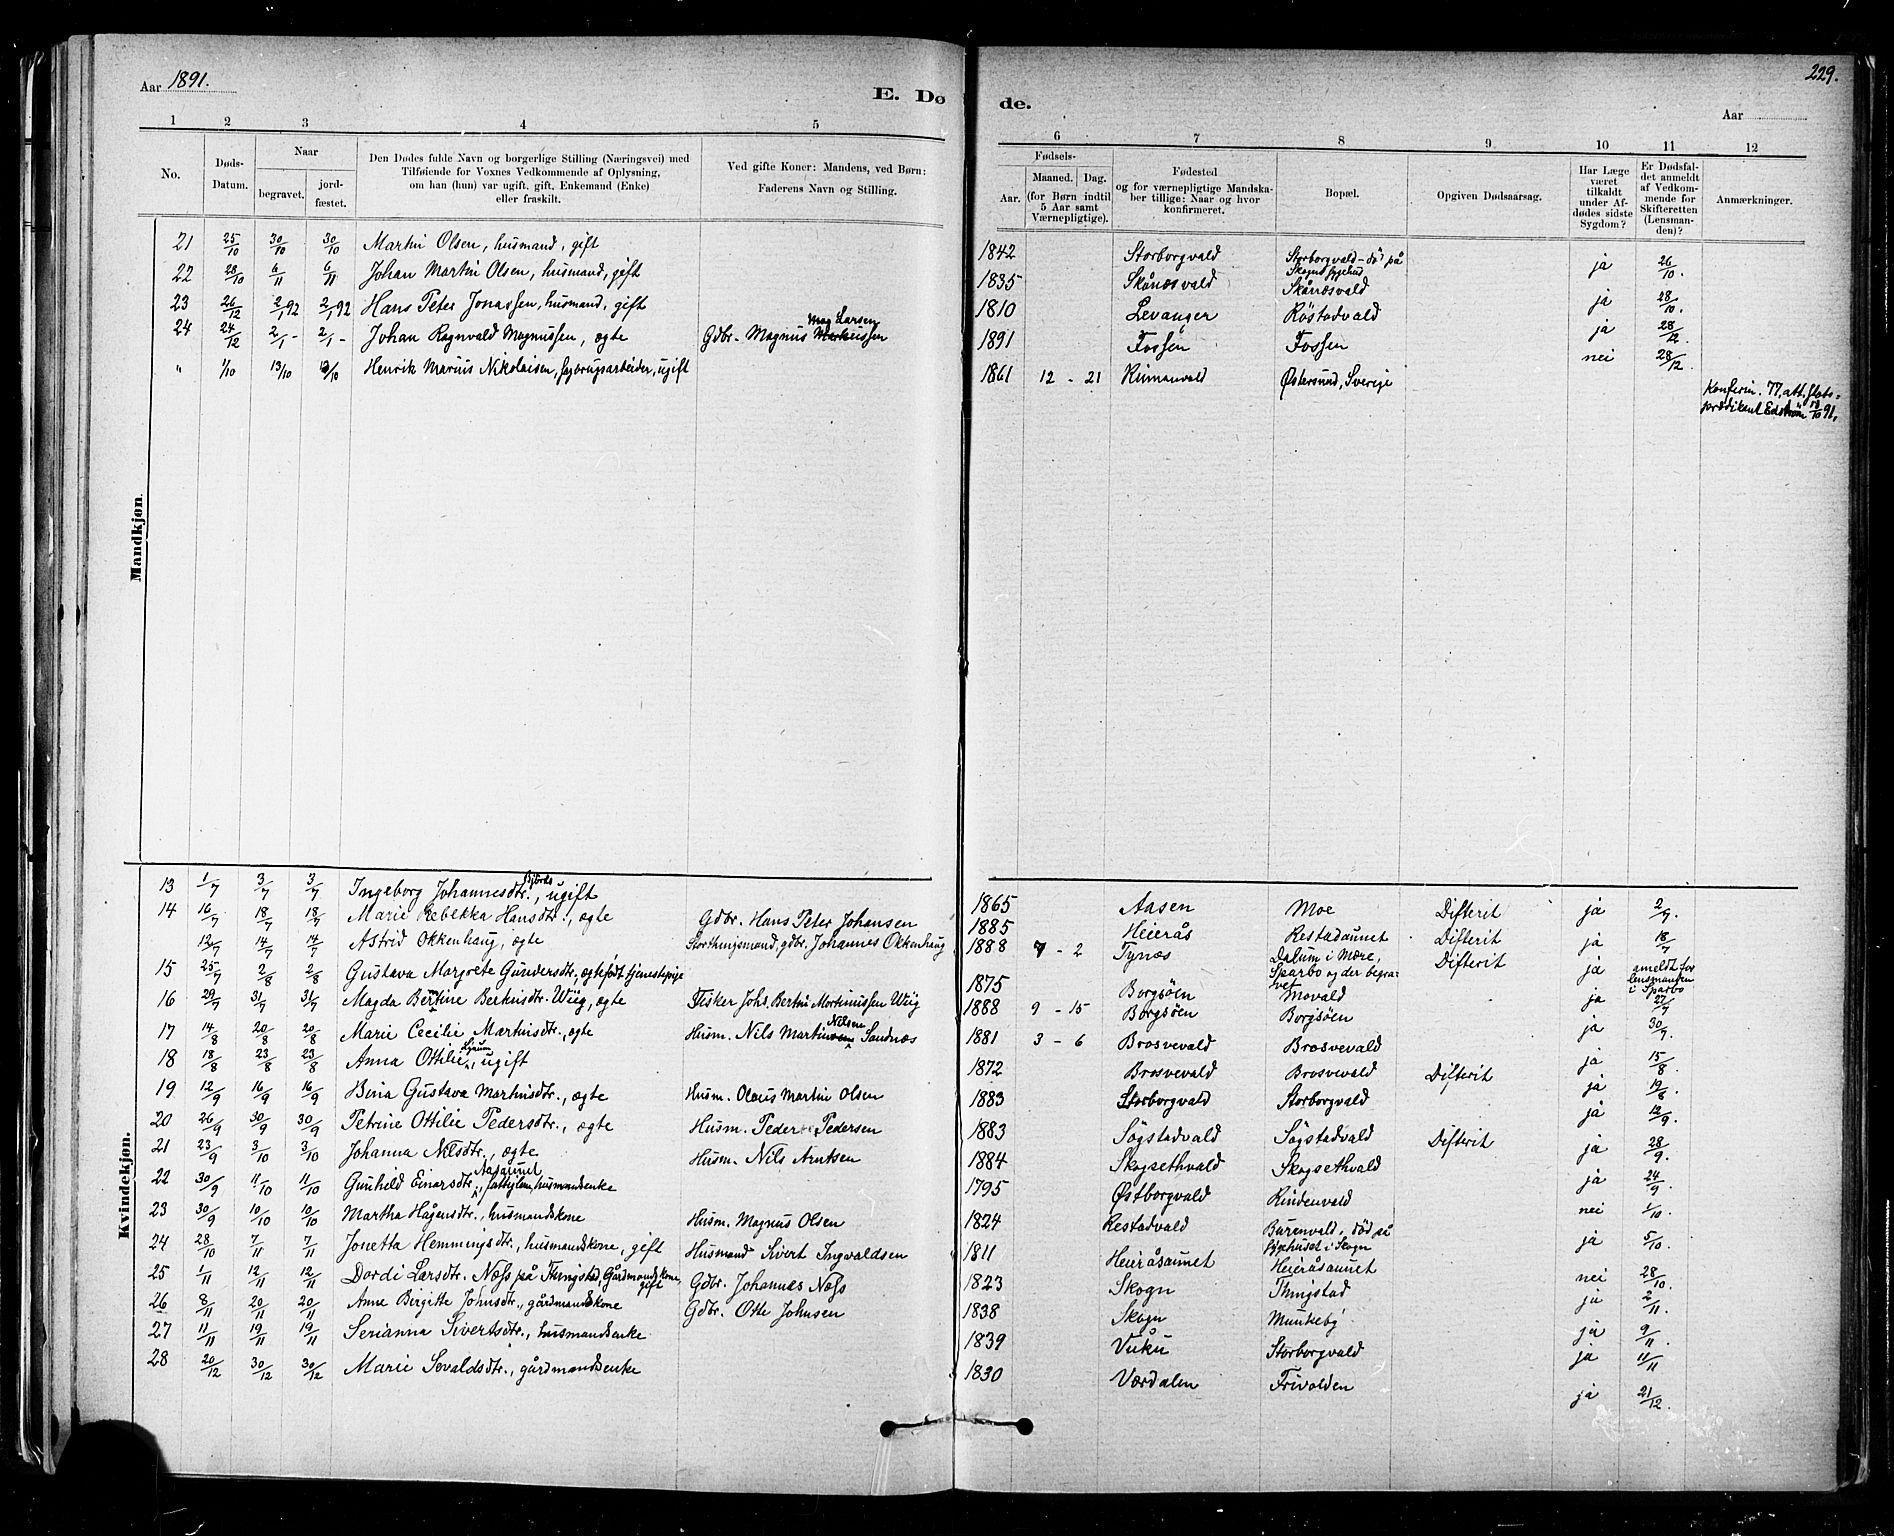 Aar 1891.
E. Dø
de.
229.
Aar
1 2 3 4 5 6 7 8 9 10 11 12
No.
Døds-
Datum.
Naar
begravet.
jord-
fæstet.
Den Dødes fulde Navn og borgerlige Stilling (Næringsvei) med
Tilføiende for Voxnes Vedkommende af Oplysning,
om han (hun) var ugift, gift, Enkemand (Enke)
eller fraskilt.
Ved gifte Koner: Mandens, ved Børn:
Faderens Navn og Stilling.
Fødsels-
Aar.
Maaned. Dag.
(for Børn indtil
5 Aar samt
Værnepligtige).
Fødested
og for værnepligtige Mandska-
ber tillige: Naar og hvor
konfirmeret.
Bopæl.
Opgiven Dødsaarsag.
Har Læge
været
tilkaldt
under Af-
dødes sidste
Sygdom?
Er Dødsfal-
det anmeldt
af Vedkom-
mende for
Skifteretten
(Lensman-
den)?
Anmærkninger.
Mandkjøn.
21 25/10 30/10 30/10 Martin Olsen, husmand, gift 1842 Storborgvald Storborgvald - död på Skogns sygehus ja 26/10.
22 28/10 6/11 6/11 Johan Martin Olsen, husmand, gift 1835 Skånæsvald Skånæsvald ja 28/10.
23 26/12 2/1 92 2/1 92 Hans Peter Jonassen, husmand, gift 1810 Levanger Röstadvald ja 28/12
24 24/12 2/1 - 2/1 - Johan Ragnvald Magnussen, ægte Gdbr. Magnus Larsen 1891 Fossen Fossen nei 28/12.
" 1/10 13/10 13/10 Henrik Marius Nikolaisen, sagbrugsarbeider, ugift 1861 12 - 21 Rinnanvald Østersund, Sverige
Konfirm. 77, att. slots-
prædikant Edström 13/10 91.
Kvindekjøn.
13 1/7 3/7 3/7 Ingeborg Johannesdtr. , ugift 1865 Aasen Moe Difterit ja 2/7.
14 16/7 18/7 18/7 Marie Rebekka Hansdtr., ægte Gdbr. Hans Peter Johansen 1885 Heierås Restadaunet Difterit ja 18/7
12/7 14/7 14/7 Astrid Okkenhaug, ægte Storthingsmand, gdbr. Johannes Okkenhaug 1888 7 - 2 Tynæs Dalum i Mære, Sparbo og der begravet Difterit ja anmeldt for lensmanden i Sparbo
15 25/7 2/8 2/8 Gustava Margrete Gundersdtr., ægtefödt tjenestepige 1875 Borgsöen Movald ja 27/7
16 29/7 31/7 31/7 Magda Bertine Bertinsdtr. Wiig, ægte Fisker Johs. Bertin Mortinussen Wiig 1888 9 - 15 Borgsöen Borgsöen ja 30/7.
17 14/8 20/8 20/8 Marie Cecilie Martinsdtr., ægte Husm. Nils Martin Nilsen Sandnæs 1881 3 - 6 Brosvevald Brosvevald ja 15/8
18 18/8 23/8 23/8 Anna Ottilie , ugift 1872 Brosvevald Brosvevald Difterit ja 19/8
19 12/9 16/9 16/9 Bina Gustava Martinsdtr., ægte Husm. Olaus Martin Olsen 1883 Storborgvald Storborgvald ja 12/9.
20 26/9 30/9 30/9 Petrine Ottilie Pedersdtr., ægte Husm. Peder Pedersen 1883 Sögstadvald Sögstadvald Difterit ja 28/9.
21 23/9 3/10 3/10 Johanna Nilsdtr., ægte Husm. Nils Arntsen 1884 Skogsethvald Skogsethvald ja 24/9.
22 30/9 11/10 11/10 Gunhild Einarsdtr., fattiglem, husmandsenke 1795 Østborgvald Rindenvald nei 1/10.
23 30/9 10/10 10/10 Martha Hågensdtr., husmandskone Husm. Magnus Olsen 1824 Restadvald Burenvald, död på sygehuset i Skogn ja 5/10.
24 28/10 7/11 7/11 Jonetta Hemmingsdtr., husmandskone, gift Husmand Sivert Ingvaldsen 1811 Heieråsaunet Heieråsaunet nei 28/10.
25 1/11 12/11 12/11 Dordi Larsdtr. Næss på Thingstad, Gårdmandskone, gift Gdbr. Johannes Næss 1823 Skogn Thingstad ja 2/11.
26 8/11 20/11 20/11 Anne Birgitte Johnsdtr., gårdmandskone Gdbr. Otte Johnsen 1838 Skogn Munkeby ja 9/11.
27 11/11 19/11 19/11 Serianna Sivertsdtr., husmandsenke 1839 Vuku Storborgvald ja 11/11
28 20/12 30/12 30/12 Marie Sevaldsdtr., gårdmandsenke 1830 Værdalen Frivolden ja 21/12.